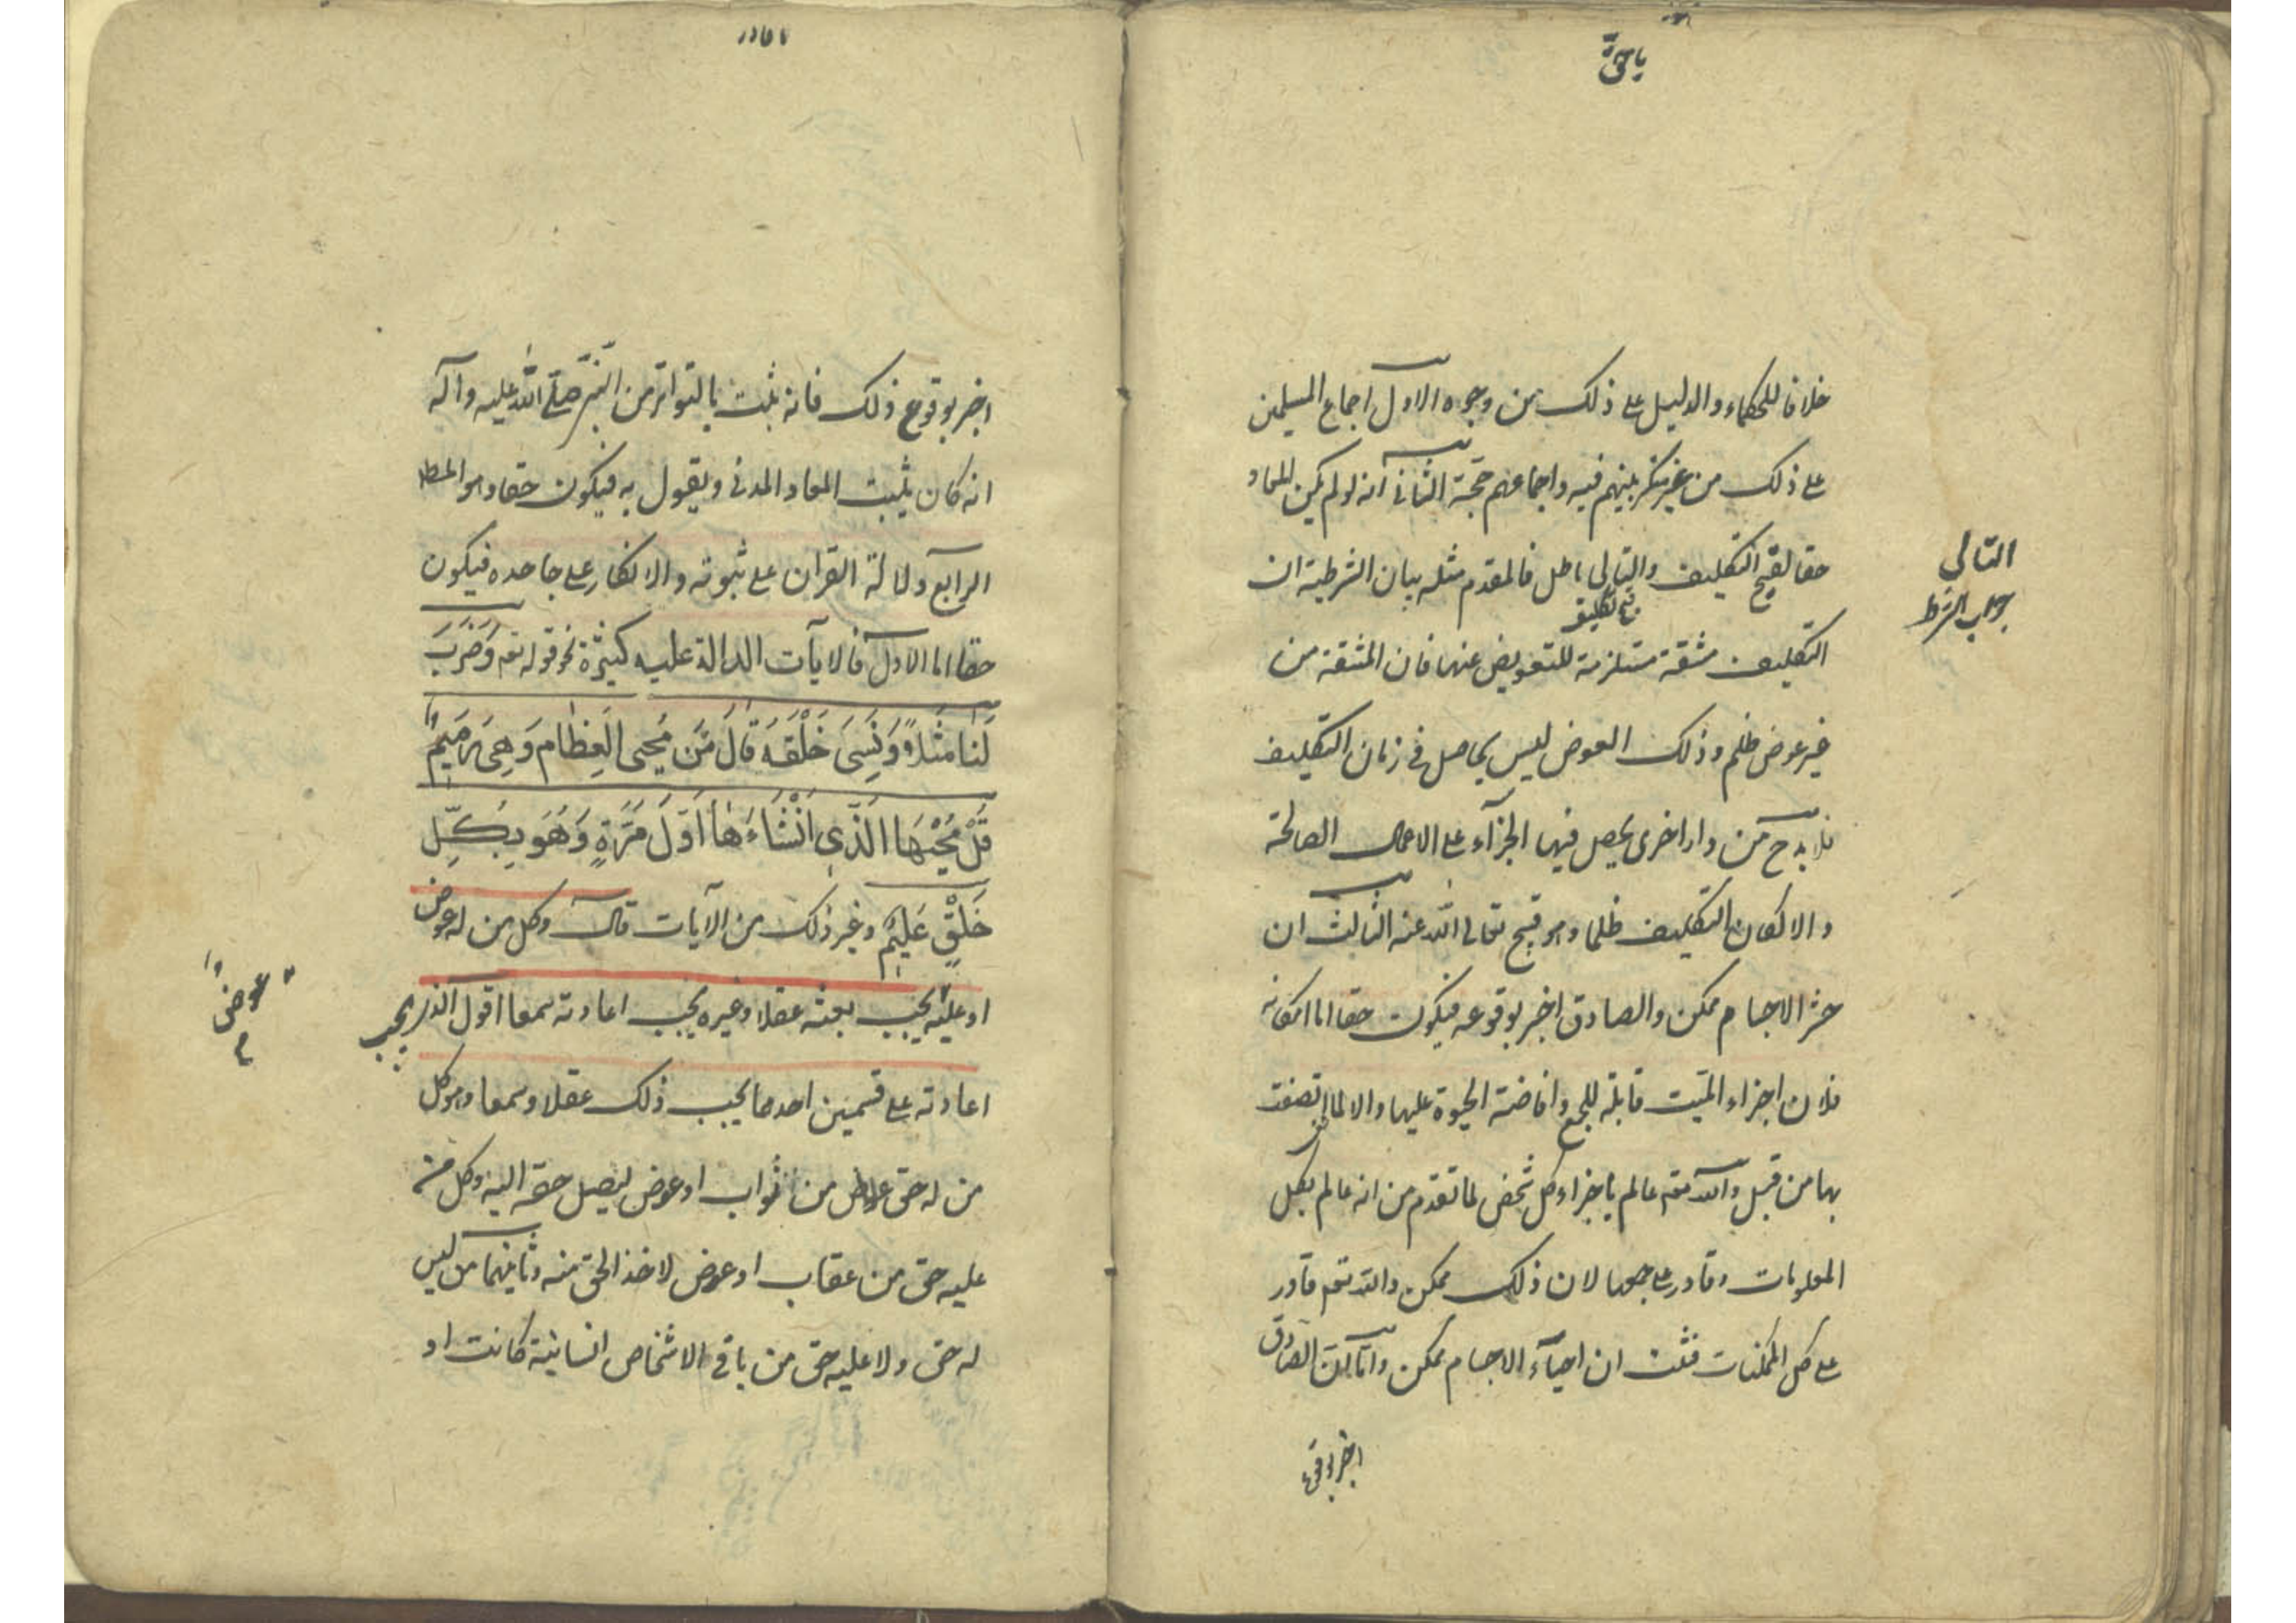 يا حق
خلافا للحكماء والدليل على ذلك من وجوه الاول اجماع المسلمين
على ذلك من غير نكير بينهم فيه واجماعهم حجة الثاني انه لو لم يكن المعاد
حقا لقبح التكليف والتالي باطل فالمقدم مثله بيان الشرطية ان
التالي
جواب الشرط
التكليف مشقة مستلزمة للتعويض عنها فان المشقة من
غير عوض ظلم وذلك العوض ليس بحاصل في زمان التكليف
فلا بد ح من دار اخرى يحصل فيها الجزآء على الاعمال الصالحة
والا لكان التكليف ظلما وهو قبيح تعالى الله عنه الثالث ان
حشر الاجسام ممكن والصادق اخبر بوقوعه فيكون حقا اما امكانه
فلان اجزاء الميت قابلة للجمع وافاضة الحيوة عليها والا لما اتصفت
بها من قبل والله تعم عالم باجزاء كل شخص لما تقدم من انه عالم بكل
المعلومات وقادر على جمعها لان ذلك ممكن والله تعم قادر
على كل الممكنات فثبت ان احيآء الاجسام ممكن واما ان الصادق
اخبر بوقوع
يا قادر
اخبر بوقوع ذلك فانه ثبت بالتواتر من النبي صلى الله عليه وآله
انه كان يثبت المعاد البدني ويقول به فيكون حقا وهو المط
الرابع دلالة القران على ثبوته والانكار على جاحده فيكون
حقا اما الاول فالآيات الدالة عليه كثيرة نحو قوله تعم وَضَرَبَ
لَنا مَثَلاً وَنَسِىَ خَلْقَهُ قالَ مَن يُحيى العِظامَ وَهِىَ رَمِيمٌ
قُلْ يُحْيِهَا الَّذِى اَنْشَاءَها اَوَّلَ مَرَّةٍ وَهُوَ بِكُلِّ
خَلْقٍ عَلِيمٌ وغير ذلك من الآيات قال وكل من له عوض
او عليه يجب بعثه عقلا وغيره يجب اعادته سمعا اقول الذي يجب
عوض
اعادته على قسمين احدهما يجب ذلك عقلا وسمعا وهو كل
من له حق من ثواب او عوض ليصل حقه اليه وكل من
عليه حق من عقاب او عوض لاخذ الحق منه وثانيهما من ليس
له حق ولا عليه حق من باقي الاشخاص انسانية كانت او